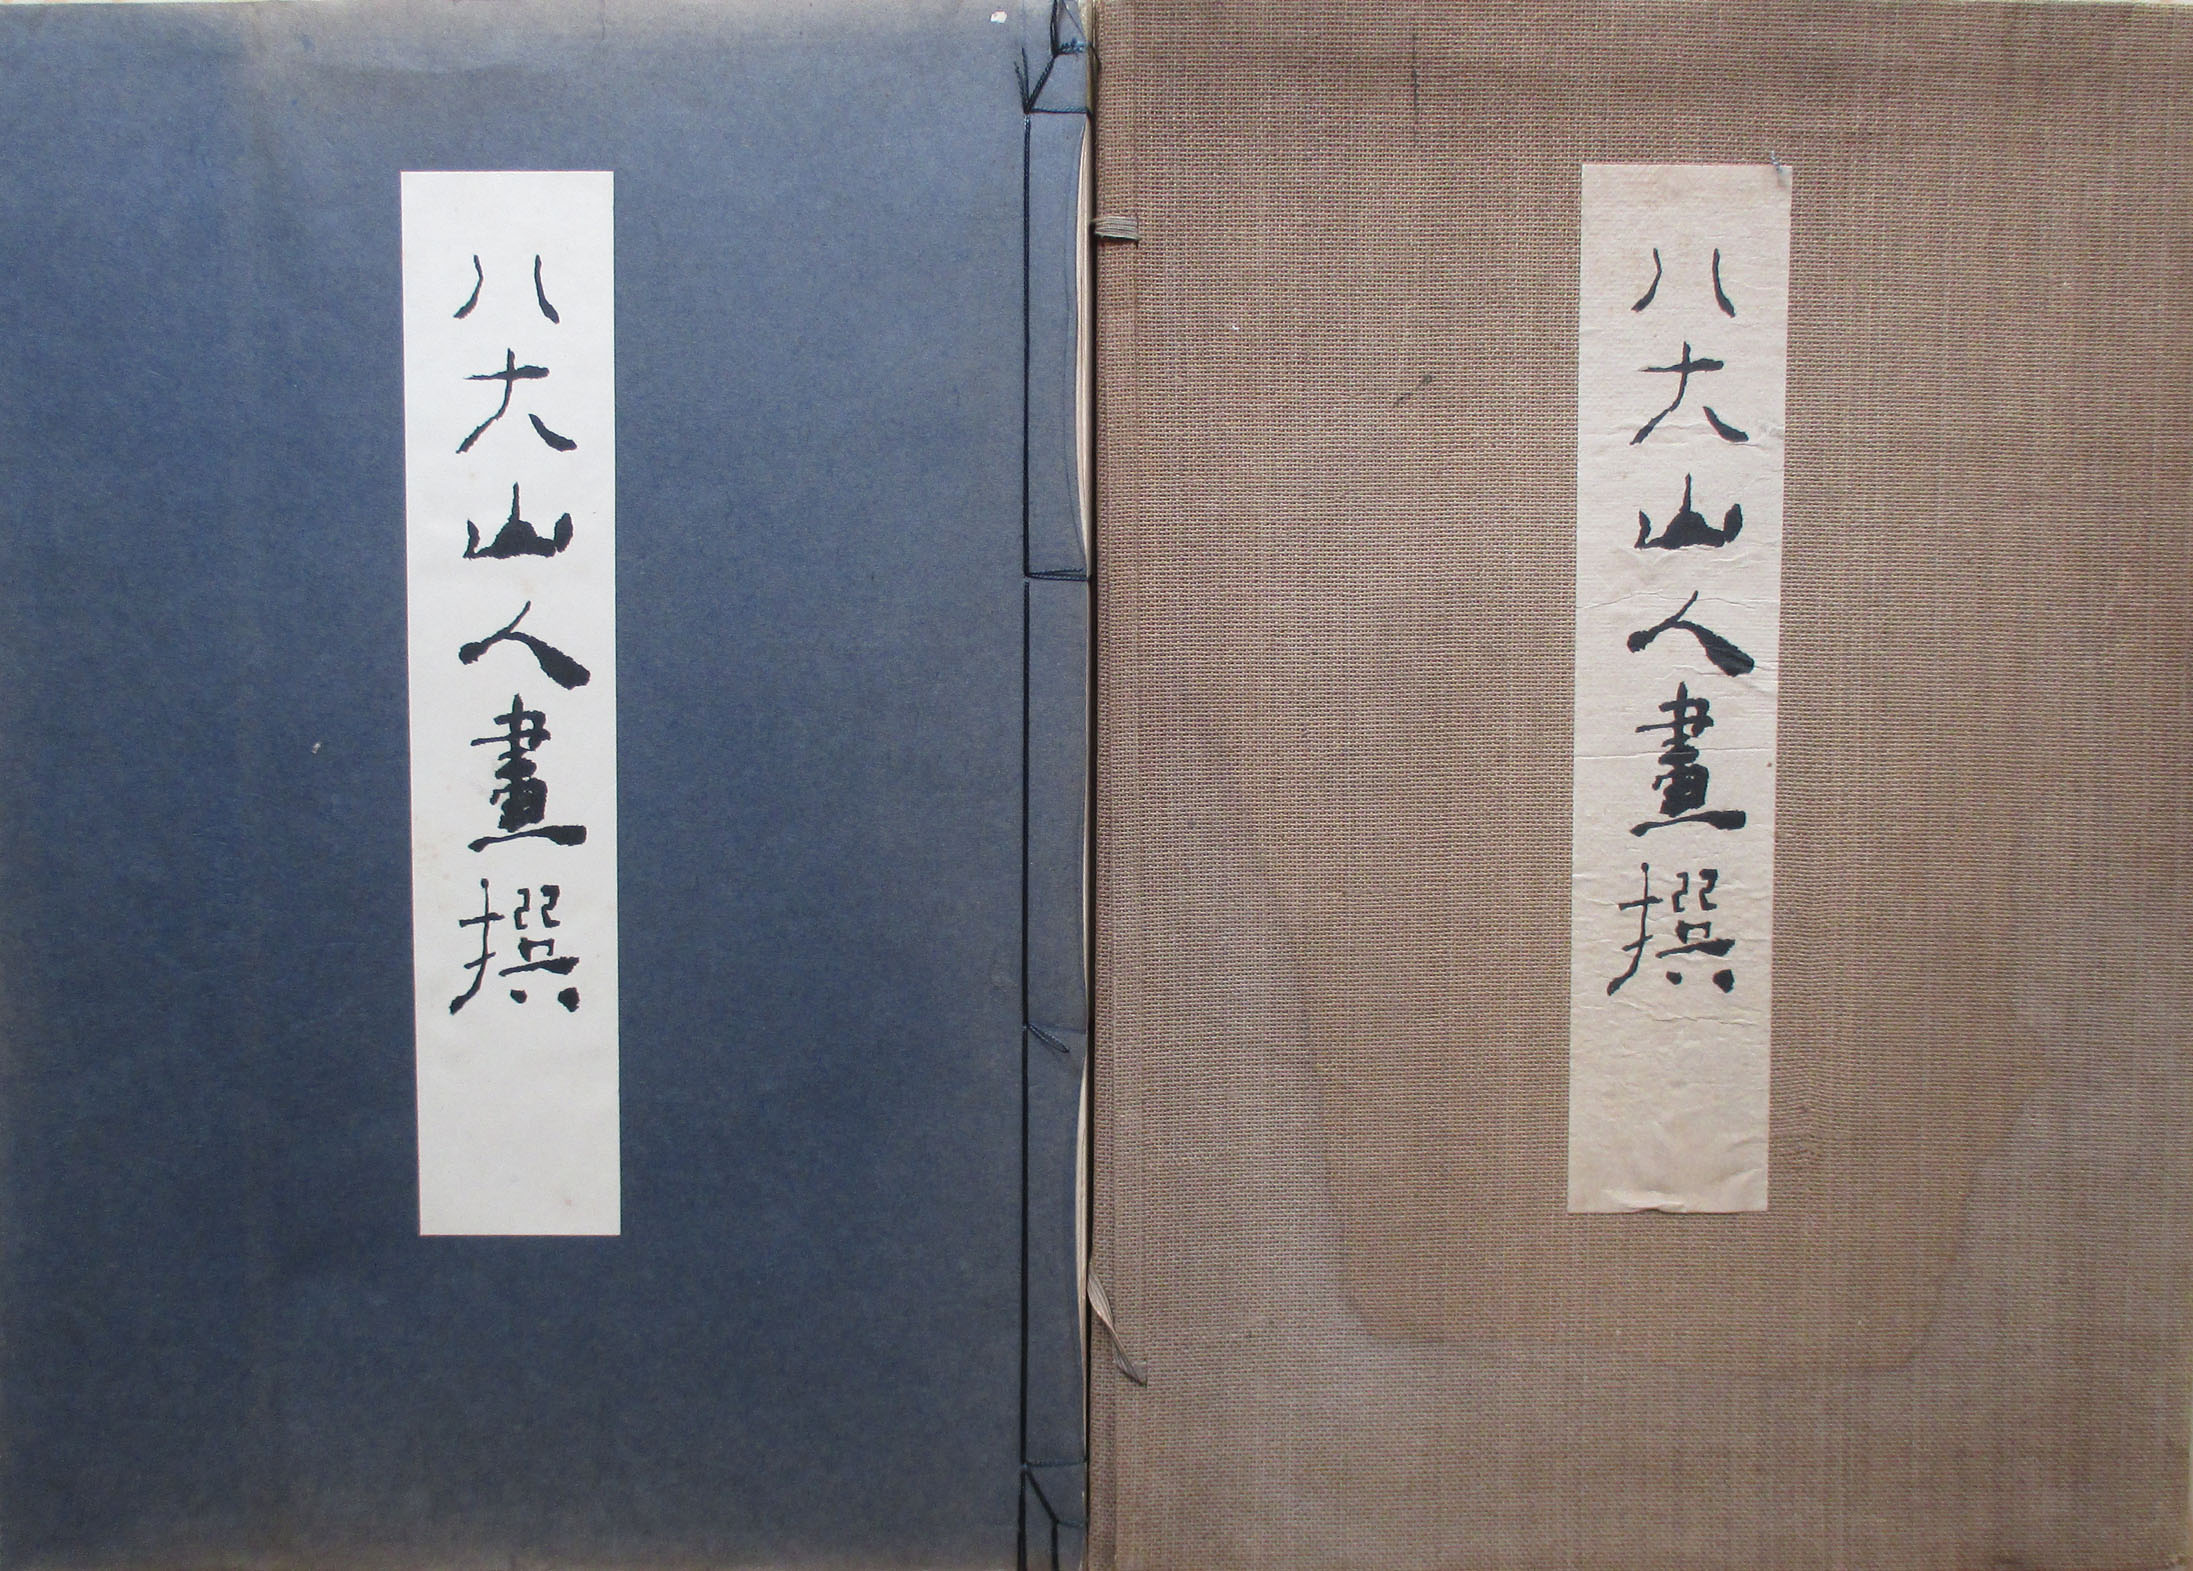 八大山人畫撰
八大山人畫撰